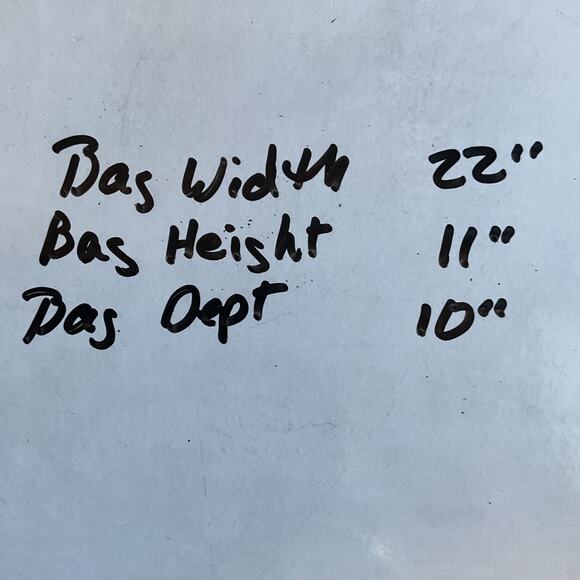 Bag Width 22"
Bag Height 11"
Bag Dept 10"